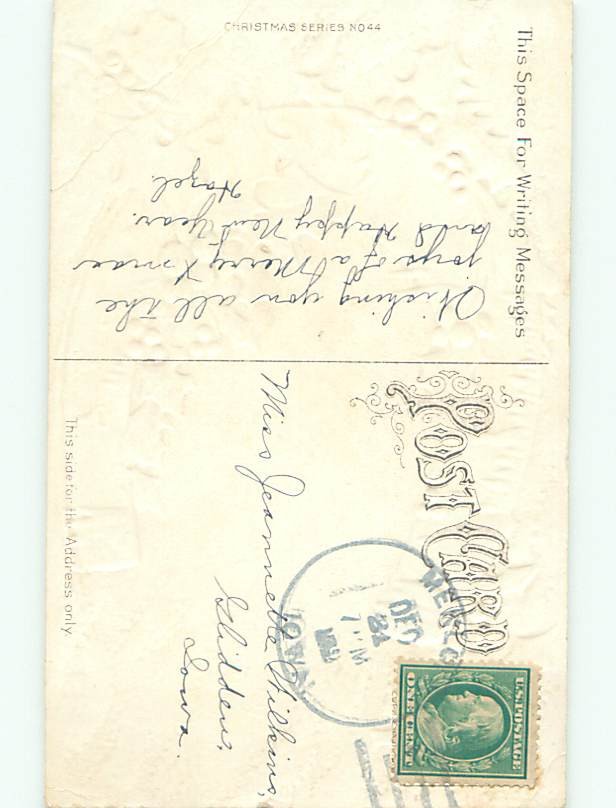 CHRISTMAS SERIES NO 44
This Space For Writing Messages
Wishing you all the
joys of a Merry Xmas
and Happy New Year.
Hazel.
POST CARD
This side for the Address only.
Miss Jeannette Wilkins,
Glidden,
Iowa.
DEC
24
7
M
IOWA
U.S. POSTAGE
ONE CENT